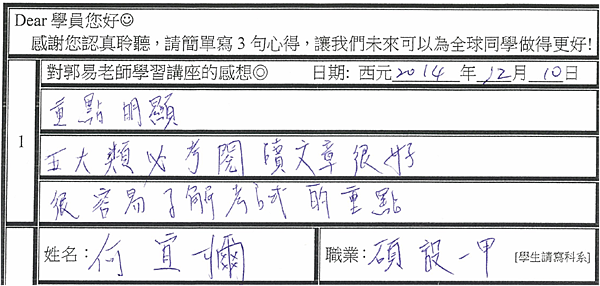 Dear 學員您好☺
感謝您認真聆聽，請簡單寫 3 句心得，讓我們未來可以為全球同學做得更好!
對郭易老師學習講座的感想◎ 日期: 西元 2014 年 12 月 10 日
1
重點明顯
五大類必考閱讀文章很好
很容易了解考試的重點
姓名：何宜 職業：碩設一甲 [學生請寫科系]